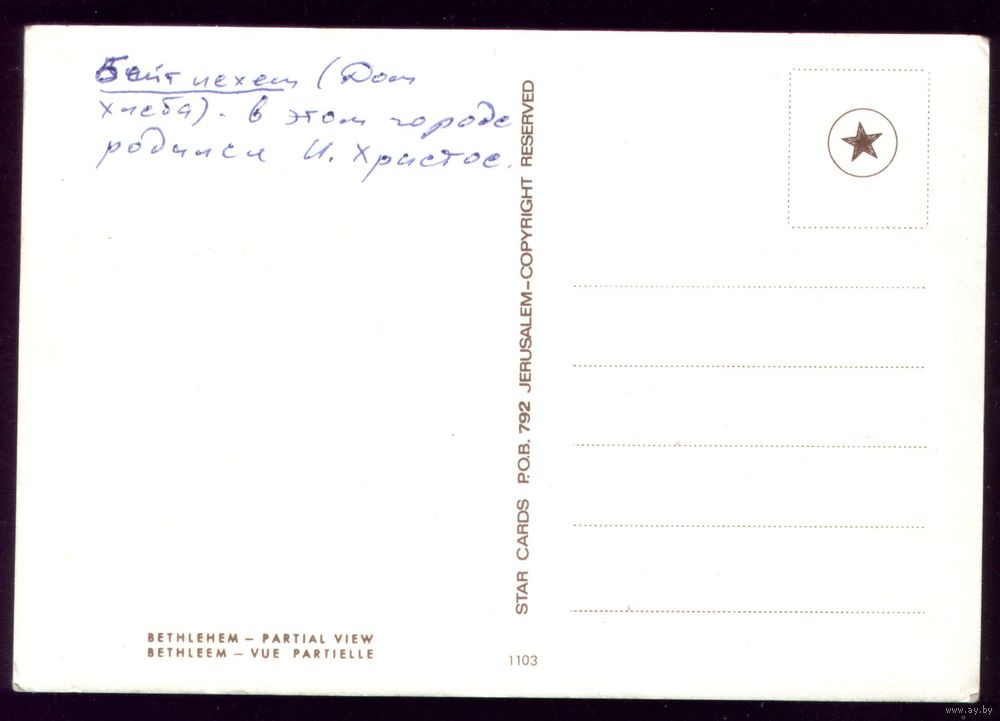 Бейт лехем (Дом
хлеба). в этом городе
родился И. Христос.
STAR CARDS P.O.B. 792 JERUSALEM–COPYRIGHT RESERVED
BETHLEHEM – PARTIAL VIEW
BETHLEEM – VUE PARTIELLE
1103
www.ay.by